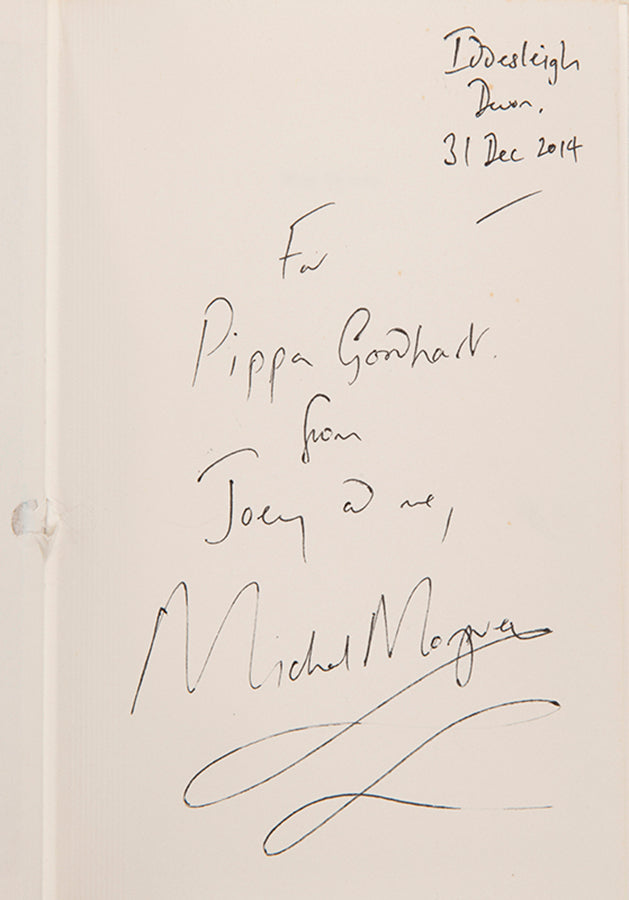 Iddesleigh
Devon.
31 Dec 2014
For
Pippa Goodhart.
from
Joey and me,
Michael Morpurgo